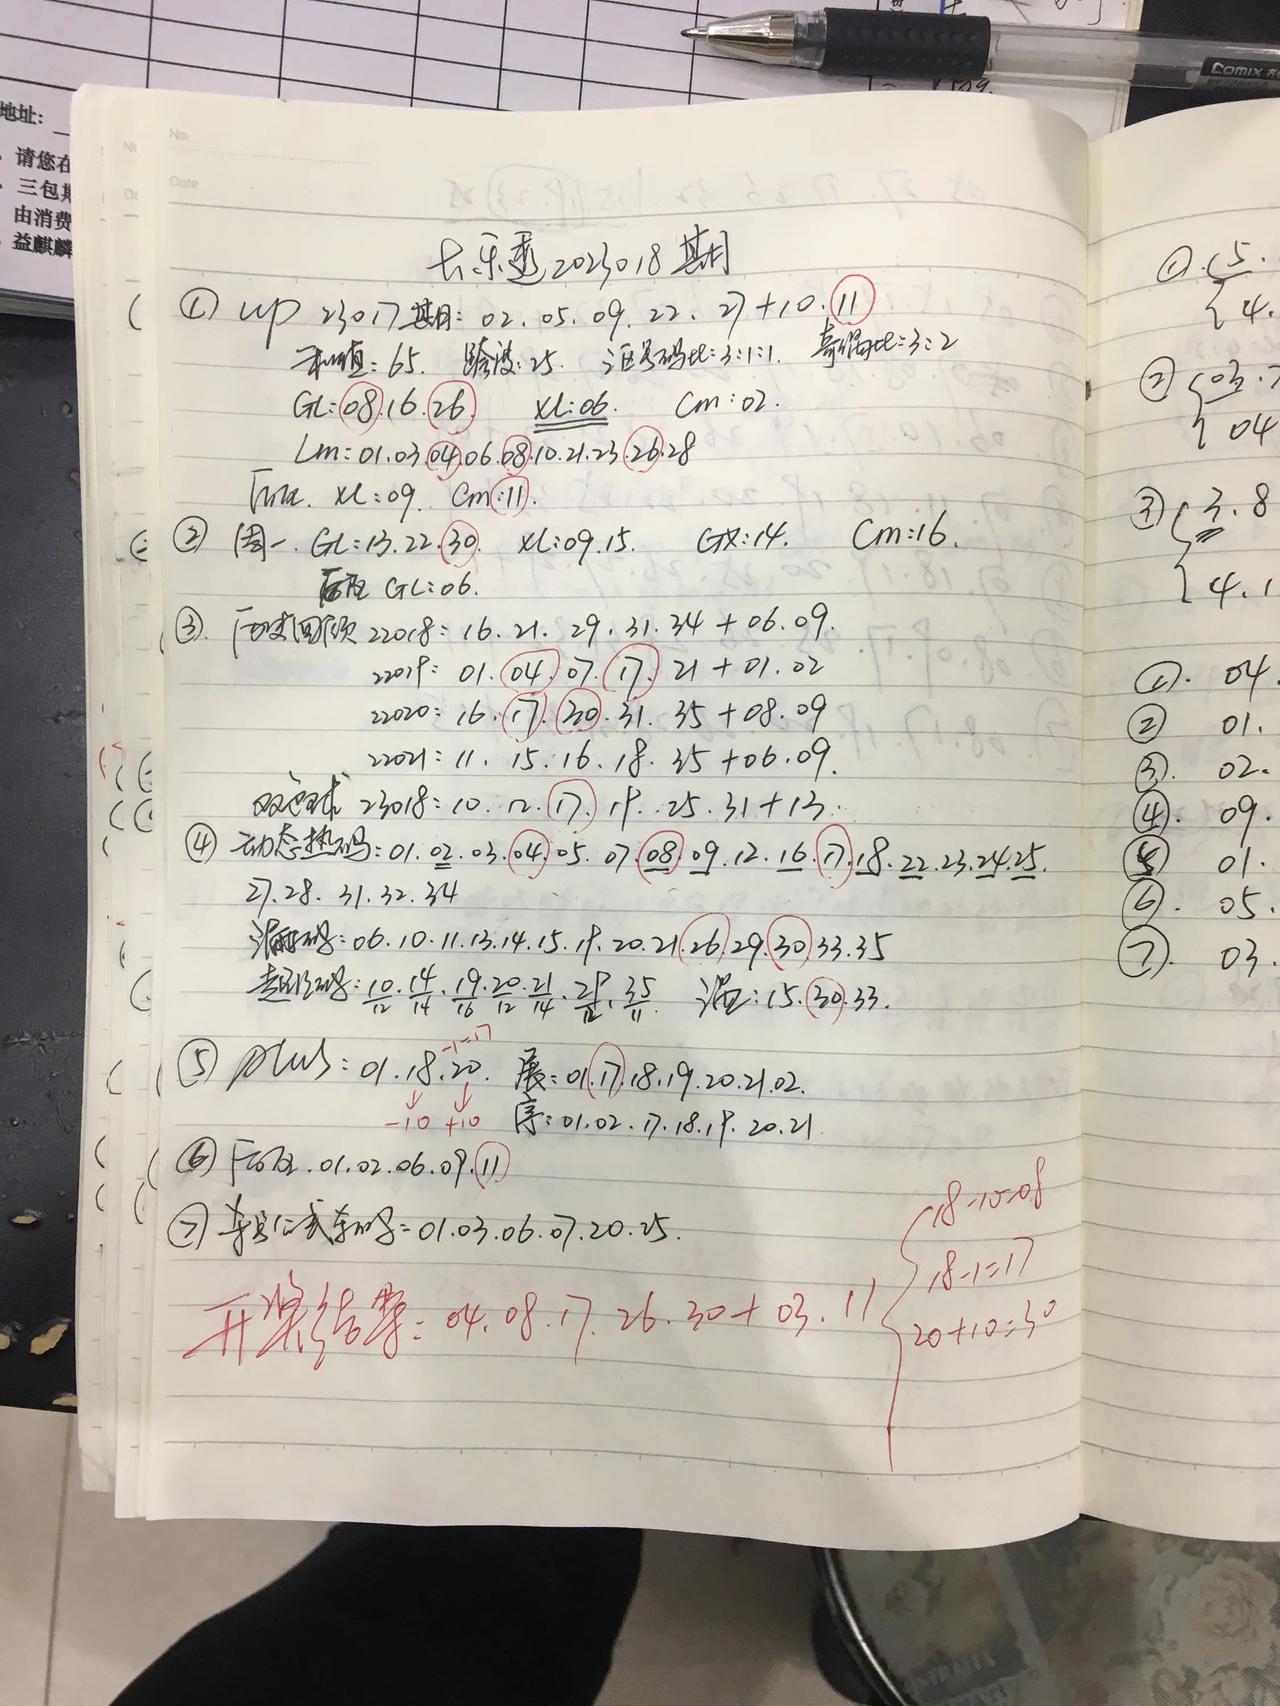 COMIX
地址:
请您在
三包期
由消费
益麒麟
No.
Date
大乐透2023018期
① up 23017期: 02.05.09.22.27+10.11
和值:65. 跨度:25. 三区号码比:3:1:1. 奇偶比:3:2
GL:08.16.26 XL:06. Cm:02.
Lm:01.03.04.06.08.10.21.23.26.28
后区. XL:09. Cm:11.
② 周一. GL:13.22.30. XL:09.15. GX:14. Cm:16.
后区 GL:06.
③. 历史回顾 22018: 16.21.29.31.34+06.09.
22019: 01.04.07.17.21+01.02
22020: 16.17.30.31.35+08.09
22021: 11.15.16.18.35+06.09.
双色球 23018: 10.12.17.19.25.31+13.
④ 动态热码: 01.02.03.04.05.07.08.09.12.16.17.18.22.23.24.25.
27.28.31.32.34
温码: 06.10.11.13.14.15.19.20.21.26.29.30.33.35
10/12.14/14.19/16.20/12.21/14.29/12.35/11. 15.30.33.
-1=17
⑤ plus: 01.18.20. 展:01.17.18.19.20.21.02.
-10 +10 序:01.02.17.18.19.20.21.
⑥ 后区.01.02.06.09.11
⑦ 01.03.06.07.20.25.
开奖结果: 04.08.17.26.30+03.11
18-10=08
18-1=17
20+10=30
① 5.
4.
② 03.
04
③ 3.8
4.1
①. 04.
② 01.
③. 02.
④. 09.
⑤ 01.
⑥. 05.
⑦. 03.